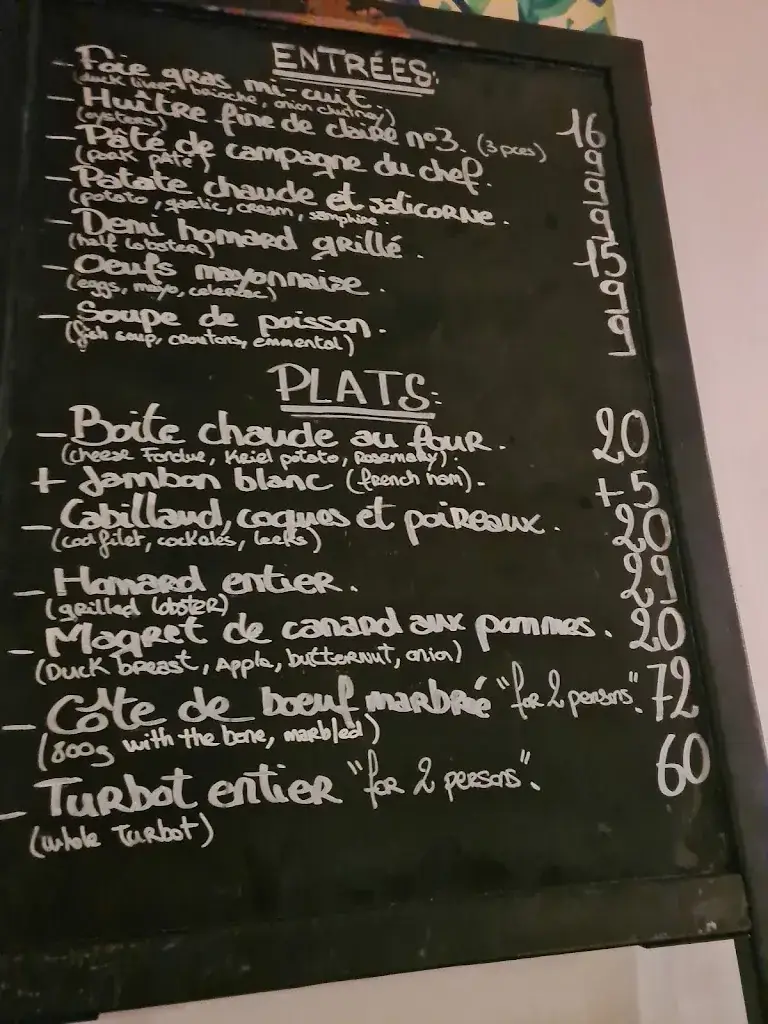 ENTRÉES:
- Foie gras mi-cuit. 16
(duck liver, brioche, onion chutney)
- Huître fine de claire n°3. (3 pces) 9
(oysters)
- Pâté de campagne du chef. 9
(pork pâté)
- Patate chaude et salicorne. 9
(potato, garlic, cream, samphire.
- Demi homard grillé. 15
(half lobster)
- Oeufs mayonnaise. 9
(eggs, mayo, celeriac)
- Soupe de poisson. 9
(fish soup, croutons, emmental)
PLATS:
- Boite chaude au four. 20
(cheese Fondue, Kriel potato, Rosemary).
+ Jambon blanc (french ham). +5
- Cabillaud, coques et poireaux. 20
(cod filet, cockeles, leeks)
- Homard entier. 29
(grilled lobster)
- Magret de canard aux pommes. 20
(Duck breast, Apple, butternut, onion)
- Côte de boeuf marbré "for 2 persons". 72
(800g with the bone, marbled)
- Turbot entier "for 2 persons". 60
(whole Turbot)